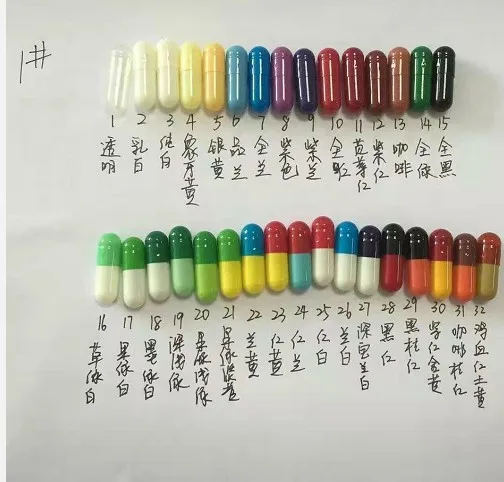 1#
1 2 3 4 5 6 7 8 9 10 11 12 13 14 15
透明
乳白
纯白
象牙黄
银黄
品兰
全兰
紫色
紫兰
全红
苋菜红
紫红
咖啡
全绿
全黑
16 17 18 19 20 21 22 23 24 25 26 27 28 29 30 31 32
草绿白
果绿白
墨绿白
深浅绿
果绿浅绿
果绿淡黄
兰黄
红黄
红兰
红白
兰白
深黑白
黑红
黑桔红
紫红金黄
咖啡桔红
鸡血红土黄